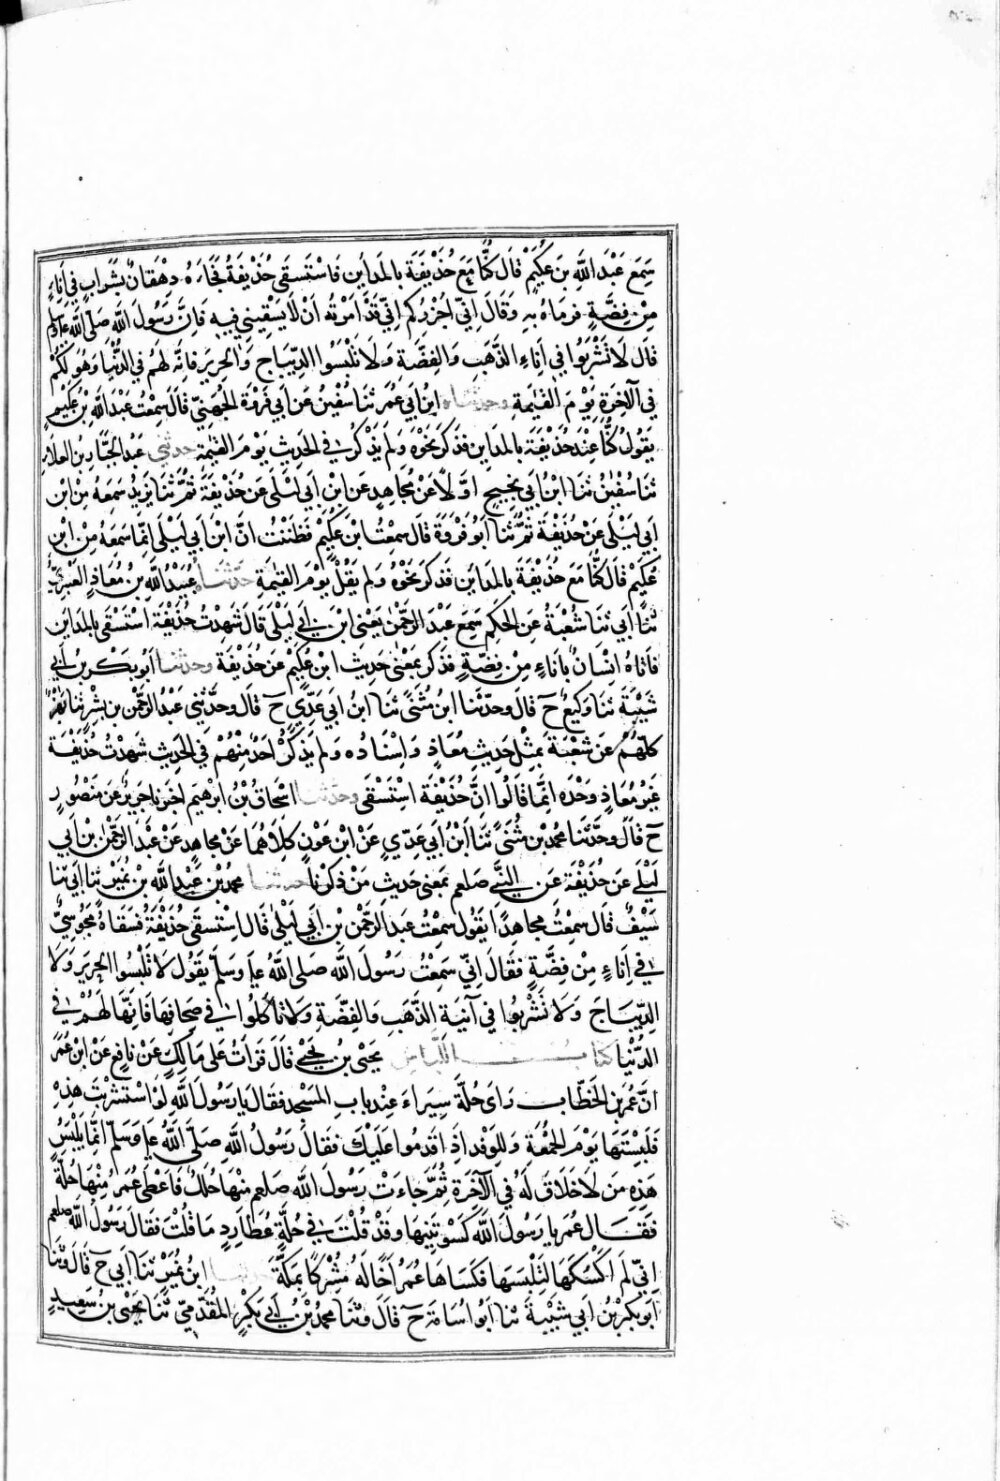 سَمِعَ عَبْدَ اللهِ بنَ عُكَيْمٍ قالَ كُنَّا مَعَ حُذَيْفَةَ بالمَدَاين فَاسْتَسقَى حُذَيْفَةُ فجَاءَهُ دِهْقانٌ بشَرابٍ في إِناءٍ
مِنْ فِضَّةٍ فرمَاهُ بهِ وَقالَ إنّي أُخْبِرُكم إنّي قَدْ أَمَرْتُه أنْ لَا يَسْقِيَني فيهِ فَإنَّ رَسُولَ اللهِ صَلّى الله علم وسلم
قالَ لَا تَشْرَبُوا في إِناءِ الذَّهَبِ وَالفِضّةِ وَلَا تَلْبَسُوا الدِّيبَاجَ وَالحرِيرَ فَإنّه لَهُم في الدُّنْيا وَهُوَ لَكُمْ
في الآخِرَةِ يَوْمَ القيٰمَةِ وحدثناه ابْنُ أبي عُمَرَ ثنا سُفْيٰنُ عَنْ أبي فَرْوَةَ الجُهَنيِّ قالَ سمِعْتُ عَبْدَ اللهِ بْنَ عُكَيمٍ
يَقُولُ كُنَّا عِنْدَ حُذَيْفَةَ بالمدَاين فذكَرَ نَحْوَهُ وَلم يَذْكُرْ في الحَدِيثِ يَوْمَ القيٰمَةِ حدثني عبدُ الجبَّارِ بن العلاءِ
ثنا سُفْيٰنُ ثنا ابْنُ أبي نَجِيحٍ أوّلًا عَنْ مُجاهِدٍ عَن ابْنِ أبي لَيْلَى عَنْ حُذَيْفَةَ ثُمَّ ثنا يَزِيدُ سَمِعَهُ مِن ابْنِ
أبي لَيْلَى عَنْ حُذَيْفَةَ ثُمَّ ثنا أَبُو فَرْوَةَ قالَ سمِعْتُ ابْنَ عُكَيْمٍ فَظَنَنْتُ أنَّ ابْنَ أَبي لَيْلَى إنّما سَمِعَهُ مِن ابْنِ
عُكَيمٍ قالَ كُنّا مَعَ حُذَيْفَةَ بالمدَاين فَذكَرَ نَحْوَهُ وَلم يَقُلْ يَوْمَ القيٰمَةِ حدثنا عُبَيْدُ اللهِ بنُ مُعَاذٍ العَنْبَرِيُّ
ثنا أبي ثنا شُعْبَةُ عنِ الحَكَمِ سَمِعَ عَبْدَ الرَّحمٰنِ يَعْني ابْنَ أبي لَيْلَى قالَ شَهِدْتُ حُذَيْفَةَ اسْتَسْقَى بالمَداينِ
فَأتاهُ إنْسَانٌ بإناءٍ مِنْ فِضّةٍ فَذكَرَ بمَعْنٰى حَدِيثِ ابْنِ عُكَيْمٍ عَنْ حُذَيْفَةَ وحدثنا أبُو بَكْرِ بْنُ أَبي
شَيْبَةَ ثنا وَكيعٌ ح قالَ وحدّثَنا ابْنُ مُثَنّى ثنا ابْنُ أبي عَدِيٍّ ح قالَ وحَدَّثَني عَبْدُ الرَّحْمٰنِ بن بِشْرٍ ثنا بَهْزٌ
كلّهُمْ عَنْ شُعْبَةَ بمِثْلِ حَدِيثِ مُعَاذٍ وَإسْنَادِهِ وَلم يَذكُرْ أَحَدٌ مِنْهُمْ في الحَدِيثِ شَهِدْتُ حُذَيْفَةَ
غَيْرُ مُعَاذٍ وَحْدَهُ إنّمَا قَالُوا انَّ حُذَيْفَةَ اسْتَسْقَى وحدثنا اسْحَاقُ بْنُ ابرٰهيمَ اخْبَرنا جَرِيرٌ عَنْ مَنْصُورٍ
ح قالَ وحَدَّثَنا محمدُ بن مُثَنّى ثنا ابْنُ أَبي عَدِيٍّ عَنْ ابْنِ عَوْنٍ كِلَاهُمَا عَنْ مجاهدٍ عَنْ عَبْدِ الرَّحْمٰنِ بْنِ أَبي
لَيْلَى عَنْ حُذَيْفَةَ عَنِ النَّبيِّ صلعم بمَعْنى حَديثِ مَنْ ذكَرْنا حدثنا محمدُ بْنُ عَبْدِ اللهِ بْنِ نُمَيْرٍ ثنا أبي ثنا
سَيْفٌ قالَ سَمِعْتُ مجاهِدًا يَقولُ سمِعْتُ عَبْدَ الرَّحْمٰنِ بْنَ أبي لَيْلَى قالَ اسْتَسْقَى حُذَيْفَةُ فَسَقاهُ مَجُوسِيٌّ
في إناءٍ مِنْ فِضّةٍ فقَالَ إنّي سَمِعْتُ رَسُولَ اللهِ صلى اللهُ علم وَسَلّم يَقولُ لَا تَلْبَسُوا الحَرِيرَ وَلَا
الدِّيبَاجَ وَلَا تَشْرَبُوا في آنِيَةِ الذَّهَبِ وَالفِضّةِ وَلا تأكُلُوا في صِحَافِهَا فَإنّها لَهُمْ في
الدُّنْيا كتاب اللباس يَحْيٰى بنُ يَحْيٰى قالَ قَرَأتُ عَلى مَالِكٍ عَنْ نافِعٍ عَنْ ابْنِ عُمَرَ
أنَّ عُمَرَ بنَ الخَطّابِ رَأى حُلّةً سِيَرَاءَ عِنْدَ بابِ المَسْجِد فقالَ يا رَسُولَ اللهِ لَوْ اسْتَشْرَيْتَ هَذِهِ
فَلَبِسْتَهَا يَوْمَ الجُمُعَةِ وَلِلوَفْدِ إذَا قَدِمُوا عَلَيْكَ فَقالَ رَسُولُ اللهِ صَلّى اللهُ علم وَسَلّم إنّما يَلْبَسُ
هَذِهِ مَن لَا خَلَاقَ لَهُ في الآخِرَةِ ثُمَّ جاءَتْ رَسُولَ اللهِ صلعم مِنْهَا حُلَلٌ فَأعْطَى عُمَرَ مِنْهَا حُلّةً
فَقَـــالَ عُمَر يا رَسُولَ اللهِ كَسَوْتَنِيهَا وَقَدْ قُلْتَ في حُلّةِ عُطَارِدٍ مَا قُلْتَ فقالَ رَسُولُ الله صلعم
إنّي لَم أكْسُكَهَا لِتَلْبَسَهَا فَكَسَاهَا عُمَرُ أخًا لَهُ مُشْرِكًا بمَكّةَ حدثنا ابنُ نُمَيْرٍ ثنا أبي ح قالَ وثنا
أبو بكرِ بْنُ أبي شَيْبَةَ ثنا أبُو أسَامَةَ ح قالَ وثنا محمدُ بْنُ أبي بَكْرٍ المُقَدَّمِيّ ثنا يَحْيٰى بنُ سَعِيدٍ